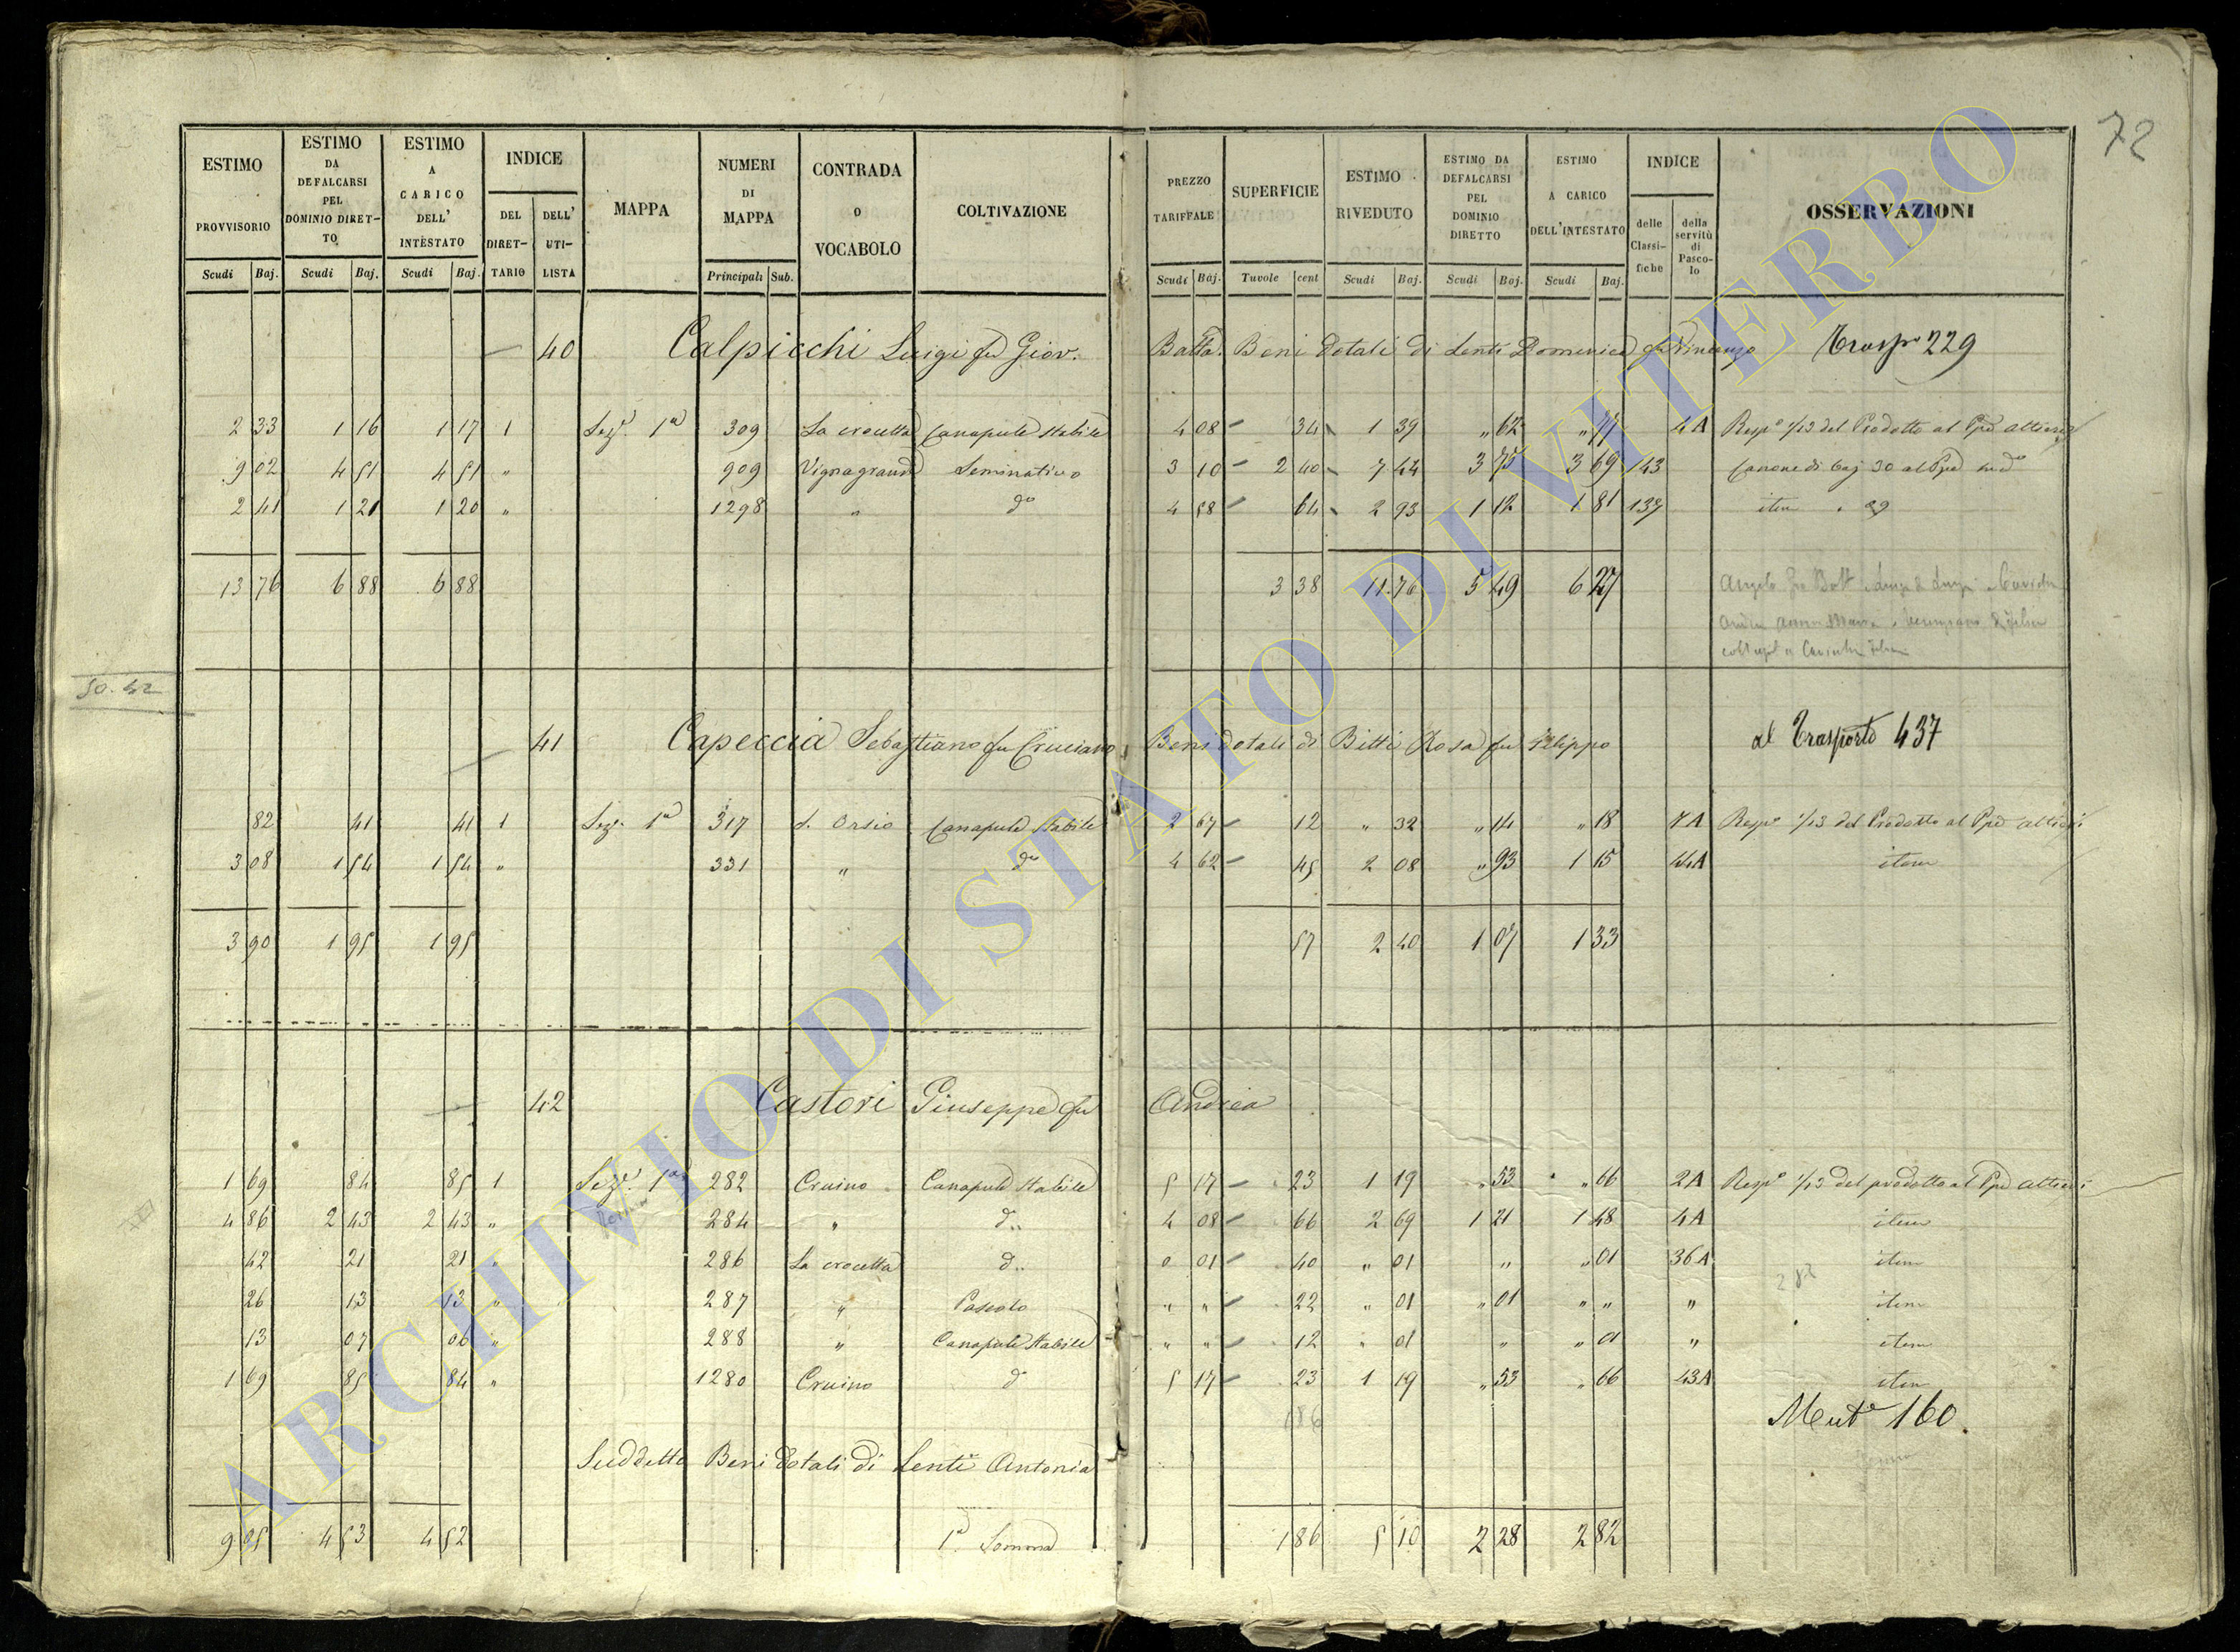 72
ESTIMO PROVVISORIO Scudi Baj.
ESTIMO DA DEFALCARSI PEL DOMINIO DIRETTO Scudi Baj.
ESTIMO A CARICO DELL' INTESTATO Scudi Baj.
INDICE DEL DIRETTARIO DELL' UTILISTA
MAPPA
NUMERI DI MAPPA Principali Sub.
CONTRADA O VOCABOLO
COLTIVAZIONE
PREZZO TARIFFALE Scudi Baj.
SUPERFICIE Tavole cent
ESTIMO RIVEDUTO Scudi Baj.
ESTIMO DA DEFALCARSI PEL DOMINIO DIRETTO Scudi Baj.
ESTIMO A CARICO DELL'INTESTATO Scudi Baj.
INDICE delle Classifiche della servitù di Pascolo
OSSERVAZIONI
40 Calpicchi Luigi fu Giov. Batta. Beni dotali di Lenti Domenica fu Vincenzo Trasp.o 229
2 33 1 16 1 17 1 Sez.e 1a 309 La crocetta Canapule stabile 4 08 34 1 39 " 62 " 77 4A Resp.o 1/13 del Prodotto al Ppe Altieri
9 02 4 51 4 51 " 909 Vignagrande Seminativo 3 10 2 40 7 44 3 75 3 69 143 Canone di baj 30 al Ppe sud.o
2 41 1 21 1 20 " 1298 " do 4 58 64 2 93 1 12 1 81 137 item " 29
13 76 6 88 6 88 3 38 11 76 5 49 6 27
50.42
41 Capeccia Sebastiano fu Cruciano Beni dotali di Bitti Rosa fu Filippo al Trasporto 437
82 41 41 1 Sez.e 1a 317 S. Orsio Canapule stabile 2 67 12 " 32 " 14 " 18 7A Resp.o 1/13 del Prodotto al Ppe Altieri
3 08 1 54 1 54 " 331 " do 4 62 45 2 08 " 93 1 15 44A item
3 90 1 95 1 95 57 2 40 1 07 1 33
42 Castori Giuseppe fu Andrea
1 69 84 85 1 Sez.e 1a 282 Cruino Canapule stabile 5 17 23 1 19 " 53 " 66 2A Resp.o 1/13 del prodotto al Ppe Altieri
4 86 2 43 2 43 " 284 " d.. 4 08 66 2 69 1 21 1 48 4A item
42 21 21 " 286 La crocetta d.. 0 01 40 " 01 " " 01 36A item
26 13 13 " 287 " Pascolo " " 22 " 01 " 01 " " " item
13 07 06 " 288 " Canapule stabile " " 12 " 01 " " 01 " item
1 69 85 84 " 1280 Cruino d 5 17 23 1 19 " 53 " 66 43A item
186 Mut.e 160.
Suddetto Beni dotali di Lenti Antonia
9 05 4 53 4 52 1a Somma 1 86 5 10 2 28 2 82
ARCHIVIO DI STATO DI VITERBO